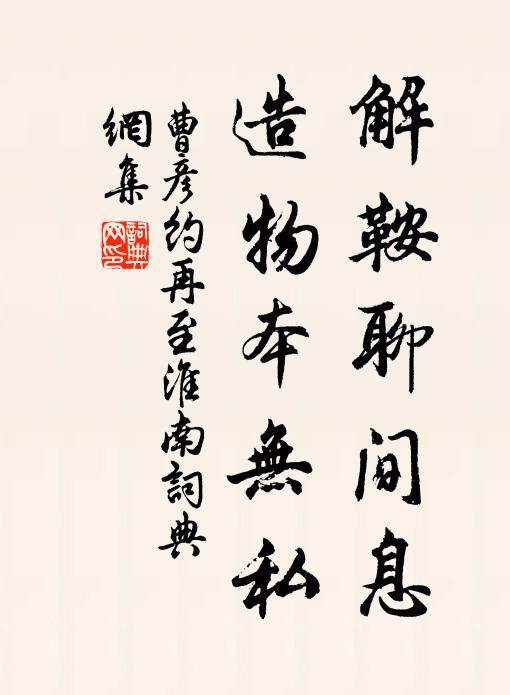 解鞍聊間息
造物本無私
曹彥約再至淮南詞典
網集
詞典
网印